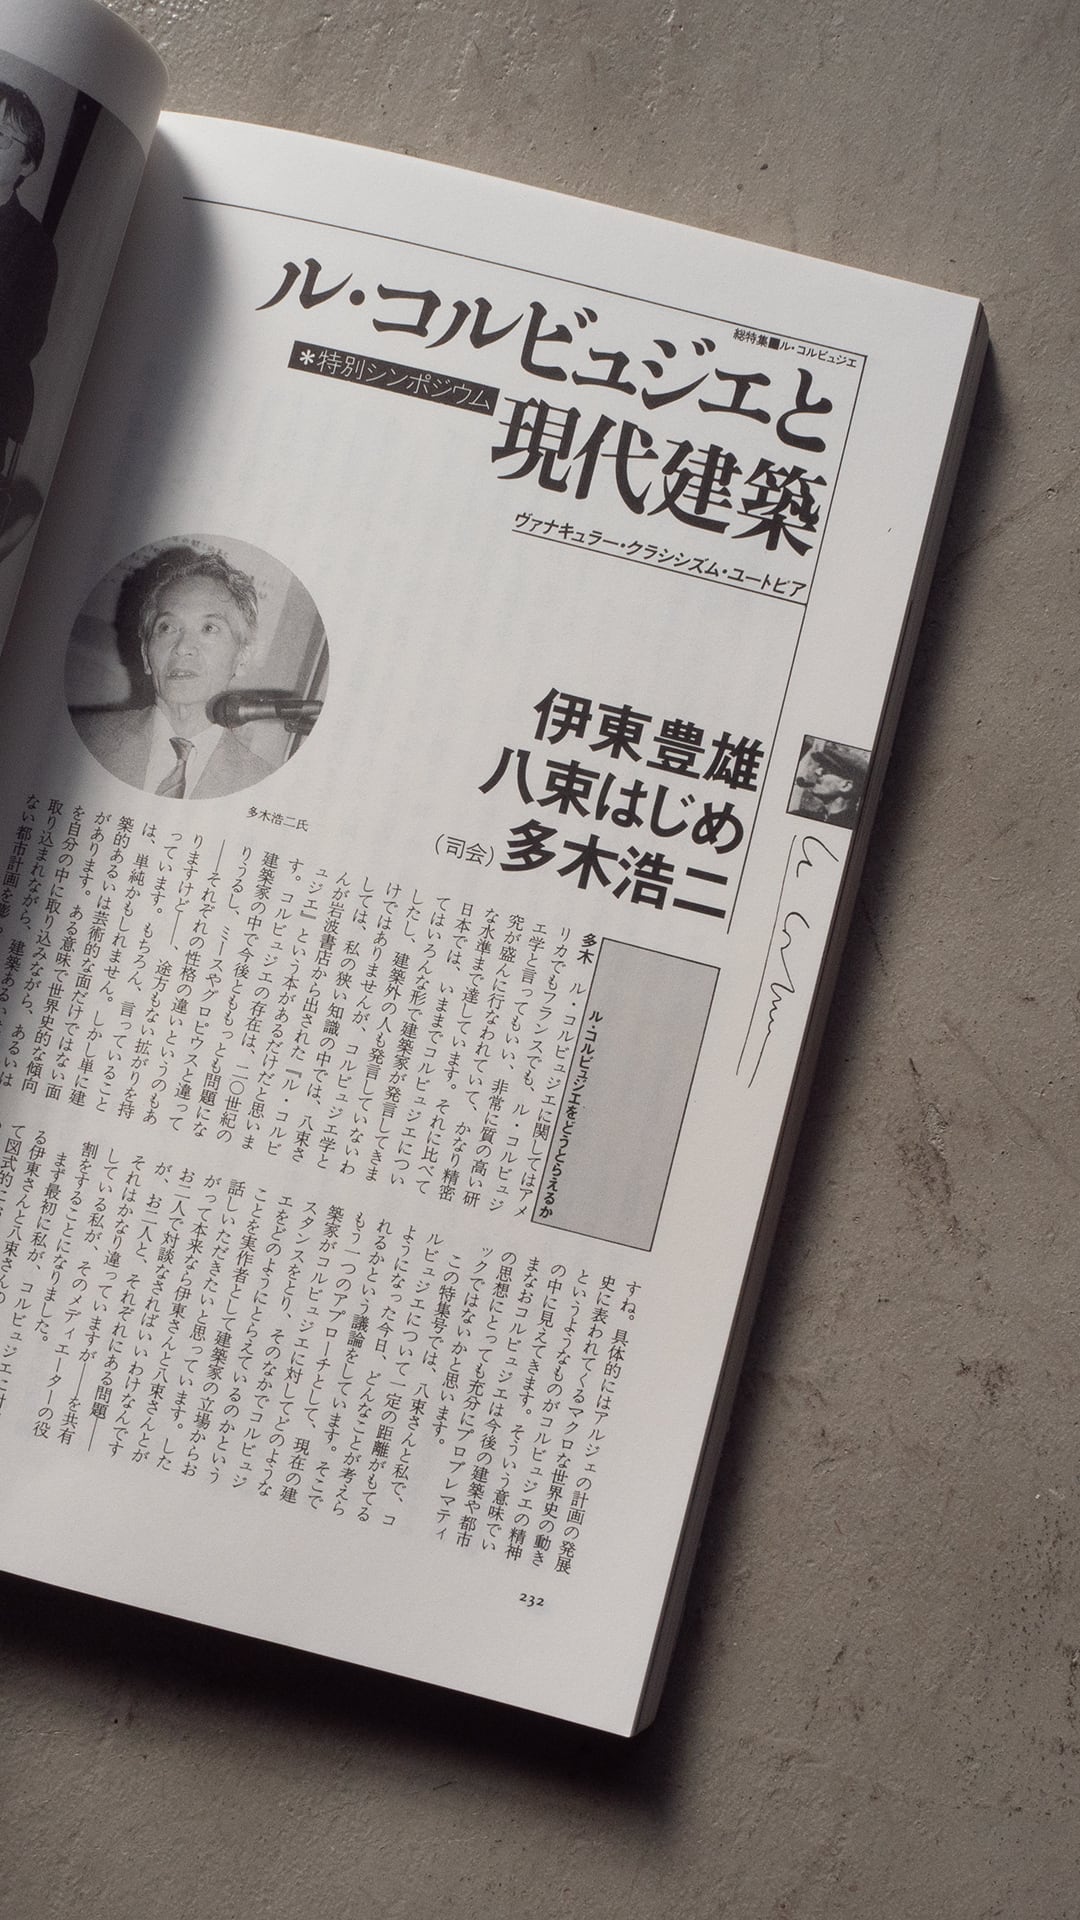 総特集■ル・コルビュジエ
ル・コルビュジエと
*特別シンポジウム
現代建築
ヴァナキュラー・クラシシズム・ユートピア
伊東豊雄
八束はじめ
(司会)多木浩二
多木浩二氏
ル・コルビュジエをどうとらえるか
多木 ル・コルビュジエに関してはアメ
リカでもフランスでも、ル・コルビュジ
エ学と言ってもいい、非常に質の高い研
究が盛んに行なわれていて、かなり精密
な水準まで達しています。それに比べて
日本では、いままでコルビュジエについ
てはいろんな形で建築家が発言してきま
したし、建築外の人も発言していないわ
けではありませんが、コルビュジエ学と
しては、私の狭い知識の中では、八束さ
んが岩波書店から出された『ル・コルビ
ュジエ』という本があるだけだと思いま
す。コルビュジエの存在は、二〇世紀の
建築家の中で今後とももっとも問題にな
りうるし、ミースやグロピウスと違って
――それぞれの性格の違いというのもあ
りますけど――、途方もない拡がりを持
っています。もちろん、言っていること
は、単純かもしれません。しかし単に建
築的あるいは芸術的な面だけではない面
があります。ある意味で世界史的な傾向
を自分の中に取り込みながら、あるいは
取り込まれながら、建築あるい
ない都市計画を
すね。具体的にはアルジェの計画の発展
史に表われてくるマクロな世界史の動き
というようなものがコルビュジエの精神
の中に見えてきます。そういう意味でい
まなおコルビュジエは今後の建築や都市
の思想にとっても充分にプロブレマティ
ックではないかと思います。
この特集号では、八束さんと私で、コ
ルビュジエについて一定の距離がもてる
ようになった今日、どんなことが考えら
れるかという議論をしています。そこで
もう一つのアプローチとして、現在の建
築家がコルビュジエに対してどのような
スタンスをとり、そのなかでコルビュジ
エをどのようにとらえているのかという
ことを実作者として建築家の立場からお
話しいただきたいと思っています。した
がって本来なら伊東さんと八束さんとが
お二人で対談なされればいいわけなんです
が、お二人と、それぞれにある問題――
それはかなり違っていますが――を共有
している私が、そのメディエーターの役
割をすることになりました。
まず最初に私が、コルビュジエに対
る伊東さんと八束さんの
て図式的に
232